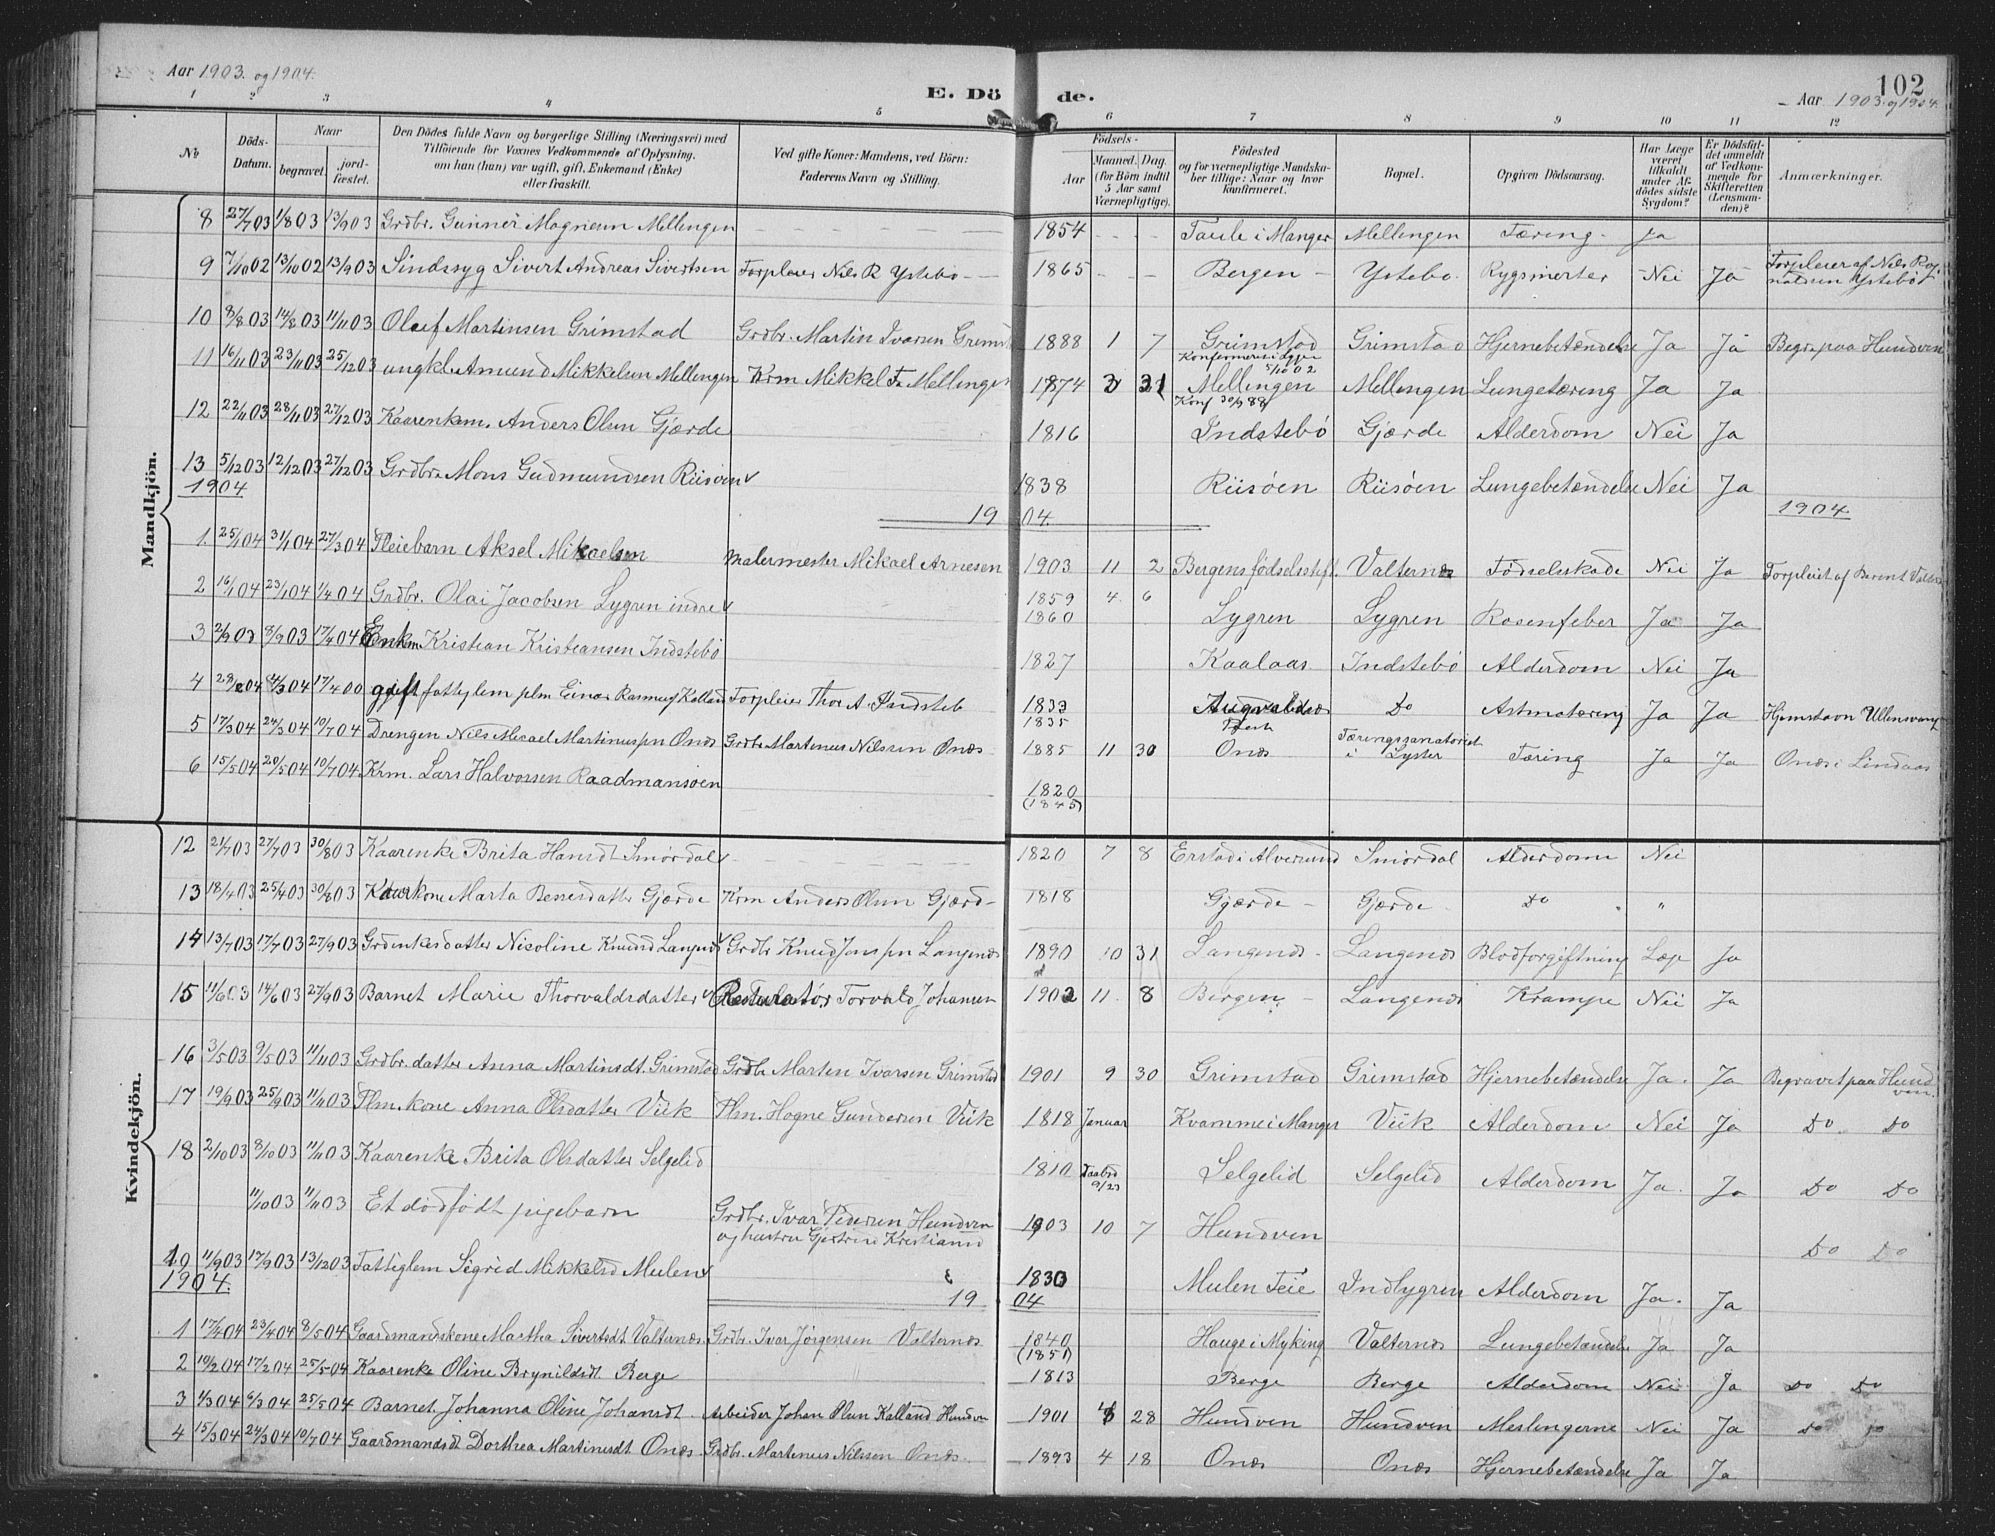 Aar 1903. og 1904.
E. Dö de.
102
Aar 1903. og 1904.
1 2 3 4 5 6 7 8 9 10 11 12
No
Döds-Datum.
Naar
begravet.
jord-fæstet.
Den Dödes fulde Navn og borgerlige Stilling (Næringsvei) med
Tilföiende for Voxnes Vedkommende af Oplysning,
om han (hun) var ugift, gift, Enkemand (Enke)
eller fraskilt.
Ved gifte Koner: Mandens, ved Börn:
Faderens Navn og Stilling.
Födsels-
Aar
Maaned. Dag.
(for Börn indtil
5 Aar samt
Værnepligtige).
Födested
og for værnepligtige Mandska-
ber tillige: Naar og hvor
konfirmeret.
Bopæl.
Opgiven Dödsaarsag.
Har Læge
været
tilkaldt
under Af-
dödes sidste
Sygdom?
Er Dödsfal-
det anmeldt
af Vedkom-
mende for
Skifteretten
(Lensman-
den)?
Anmærkninger.
Mandkjön.
8 27/7 03 1/8 03 13/9 03 Grdbr. Gunner Magnesen Mellingen 1854 Taule i Manger Mellingen Tæring Ja
9 7/10 02 13/10 02 13/9 03 Sindssyg Sivert Andreas Sivertsen Forpleier Nils R Ystebø 1865 Bergen Ystebø Rygsmerter Nei Ja Forpleier af Nils Rag-
naldsen Ystebø
10 8/8 03 14/8 03 11/11 03 Oluf Martinsen Grimstad Grdbr. Martin Ivarsen Grimst 1888 1 7 Grimstad Grimstad Hjernebetændelse Ja Ja Begr. paa Hundven
Konfirmeret i Lygre
5/10 02
11 16/11 03 23/11 03 25/12 03 ungkl. Amund Mikkelsen Mellingen Krm Mikkel Mellingen 1874 3 31 Mellingen Mellingen Lungetæring Ja Ja
Konf 30/9 88
12 22/11 03 28/11 03 27/12 03 Kaarenkem. Anders Olsen Gjerde 1816 Indstebö Gjærde Alderdom Nei Ja
13 5/12 03 12/12 03 27/12 03 Grdbr. Mons Gudmundsen Riisøen 1838 Riisøen Riisøen Lungebetændelse Nei Ja
1904 19 04. 1904.
1. 25/1 04 31/1 04 27/3 04 Pleiebarn Aksel Mikaelsen Malermester Mikael Arnesen 1903 11 2 Bergens fødselsstift. Valternes Fødselsskade Nei Ja Forpleiet af Berent
2 16/1 04 23/1 04 1/4 04 Grdbr. Olai Jacobsen Lygren indre 1859 4. 6
1860 Lygren Lygren Rosenfeber Ja Ja
3 2/9 03 8/9 03 17/4 04 Enkm Kristian Kristiansen Indstebö 1827 Kaalaas Indstebö Alderdom Nei Ja
4 28/2 04 4/3 04 17/4 00 gift fattiglem plm Einar Rasmus Kalland Forpleier Thor A. Indsteb 1833
1835 Do Astmatæring Ja Ja Hjemstavn Ullensvang
5 17/3 04 24/3 04 10/7 04 Drengen Nils Micael Martinussn Onæs Grdbr. Martinus Nilssen Onæs 1885 11 30 Onæs Tæringssanatoriet
i Lyster Tæring Ja Ja Onæs i Lindaas
6 15/5 04 20/5 04 10/7 04 Krm. Lars Halvorsen Raadmansøen 1820
(1845)
Kvindekjön.
12 21/7 03 27/7 03 30/8 03 Kaarenke Brita Hansdt Smördal 1820 7 8 Erstad i Alversund Smördal Alderdom Nei
13 18/4 03 25/4 03 30/8 03 Kaarkone Marta Bersesdatter Gjerde Krm Anders Olsen Gjærd 1818 Gjærde Gjærde Do "
14 13/7 03 17/7 03 27/9 03 Grdenkesdatter Nicoline Knudsd Langenæs Grdbr. Knud Jonssn Langenæs 1890 10 31 Langenæs Langenæs Blodforgiftning Læge Ja
15 11/6 03 14/6 03 27/9 03 Barnet Marie Thorvaldsdatter Restaratör Torvald Johansen 1902 11. 8 Bergen Langenæs Krampe Nei Ja
16 3/5 03 9/5 03 11/11 03 Grdbr. datter Anna Martinsdt. Grimstad Grdbr Martin Ivarsen Grimstad 1901 9 30 Grimstad Grimstad Hjernebetændelse Ja. Ja Begravet paa Hund
ven.
17 19/9 03 25/9 03 11/11 03 Plm. kone Anna Olsdatter Viik Plm. Hogne Gundersen Viik 1818 Januar Kvamme i Manger Viik Alderdom Nei Ja Do Do
18 2/10 03 8/10 03 11/11 03 Kaarenke Brita Olsdatter Selgelid 1810 Daabsd
9/23 Selgelid Selgelid Alderdom Ja. Ja Do Do
11/10 03 11/11 03 Et dödfödt pigebarn Grdbr. Ivar Pedersen Hundven
og hustru Gjertrud Kristiansd 1903 10 7 Hundven Do Do
19 11/9 03 17/9 03 13/12 03 Fattiglem Sigrid Mikkelsd Mulen 1830 Mulen Feie Indlygren Alderdom Ja. Ja
1904. 19 04
1 17/4 04 23/4 04 8/5 04 Gaardmandskone Martha Sivertsdt Valternæs Grdbr. Ivar Jørgensen Valternæs 1840
(1851) Hauge i Myking Valternæs Lungebetændelse Ja Ja
2 10/2 04 17/2 04 25/5 04 Kaarenke Oline Brynildsdt. Berge 1813 Berge Berge Alderdom Nei Ja Do Do
3 1/3 04 6/3 04 25/5 04 Barnet Johanna Oline Johansdt. Arbeider Johan Olsen Kalland Hundven 1901 28 Hundven Hundven Meslingerne Nei Ja Do Do
4 15/3 04 24/3 04 10/7 04 Gaardmandsdt Dorthea Martinusdt Onæs Grdbr. Martinus Nilssen Onæs. 1893 4 18 Onæs Onæs Hjernebetændelse Ja Ja